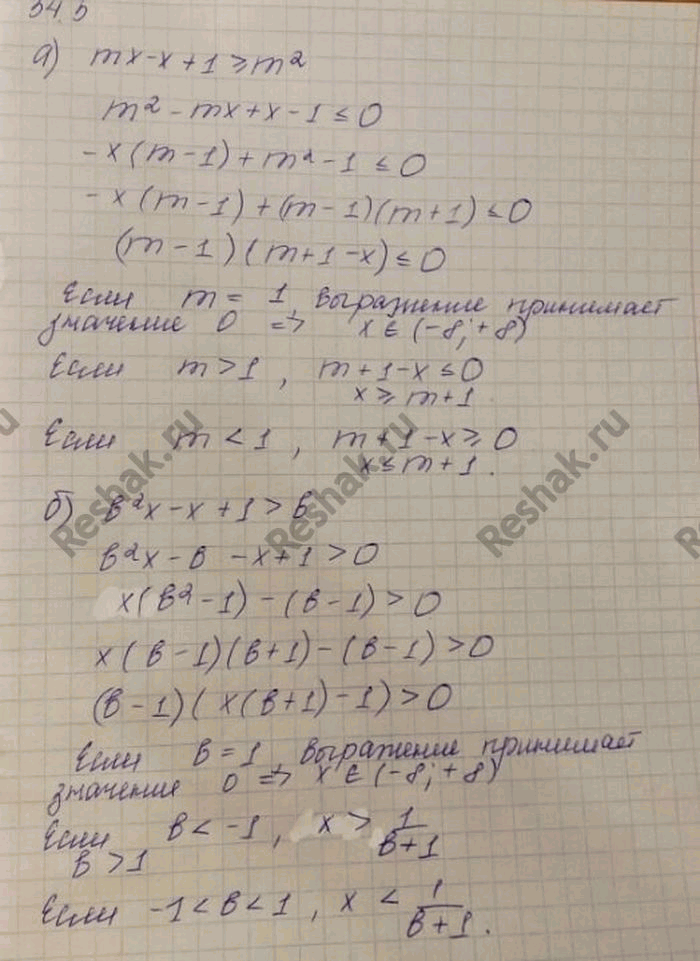 34.5
а) mx-x+1≥m²
m²-mx+x-1≤0
-x(m-1)+m²-1≤0
-x(m-1)+(m-1)(m+1)≤0
(m-1)(m+1-x)≤0
Если m=1, выражение принимает
значение 0 => x∈(-8;+8)
Если m>1, m+1-x≤0
x≥m+1.
Если m<1, m+1-x≥0
x≤m+1.
б) в²x-x+1>в
в²x-в-x+1>0
x(в²-1)-(в-1)>0
x(в-1)(в+1)-(в-1)>0
(в-1)(x(в+1)-1)>0
Если в=1, выражение принимает
значение 0 => x∈(-8;+8)
Если в<-1, x>1/(в+1)
в>1
Если -1<в<1, x<1/(в+1).
Reshak.ru
Reshak.ru
Reshak.ru